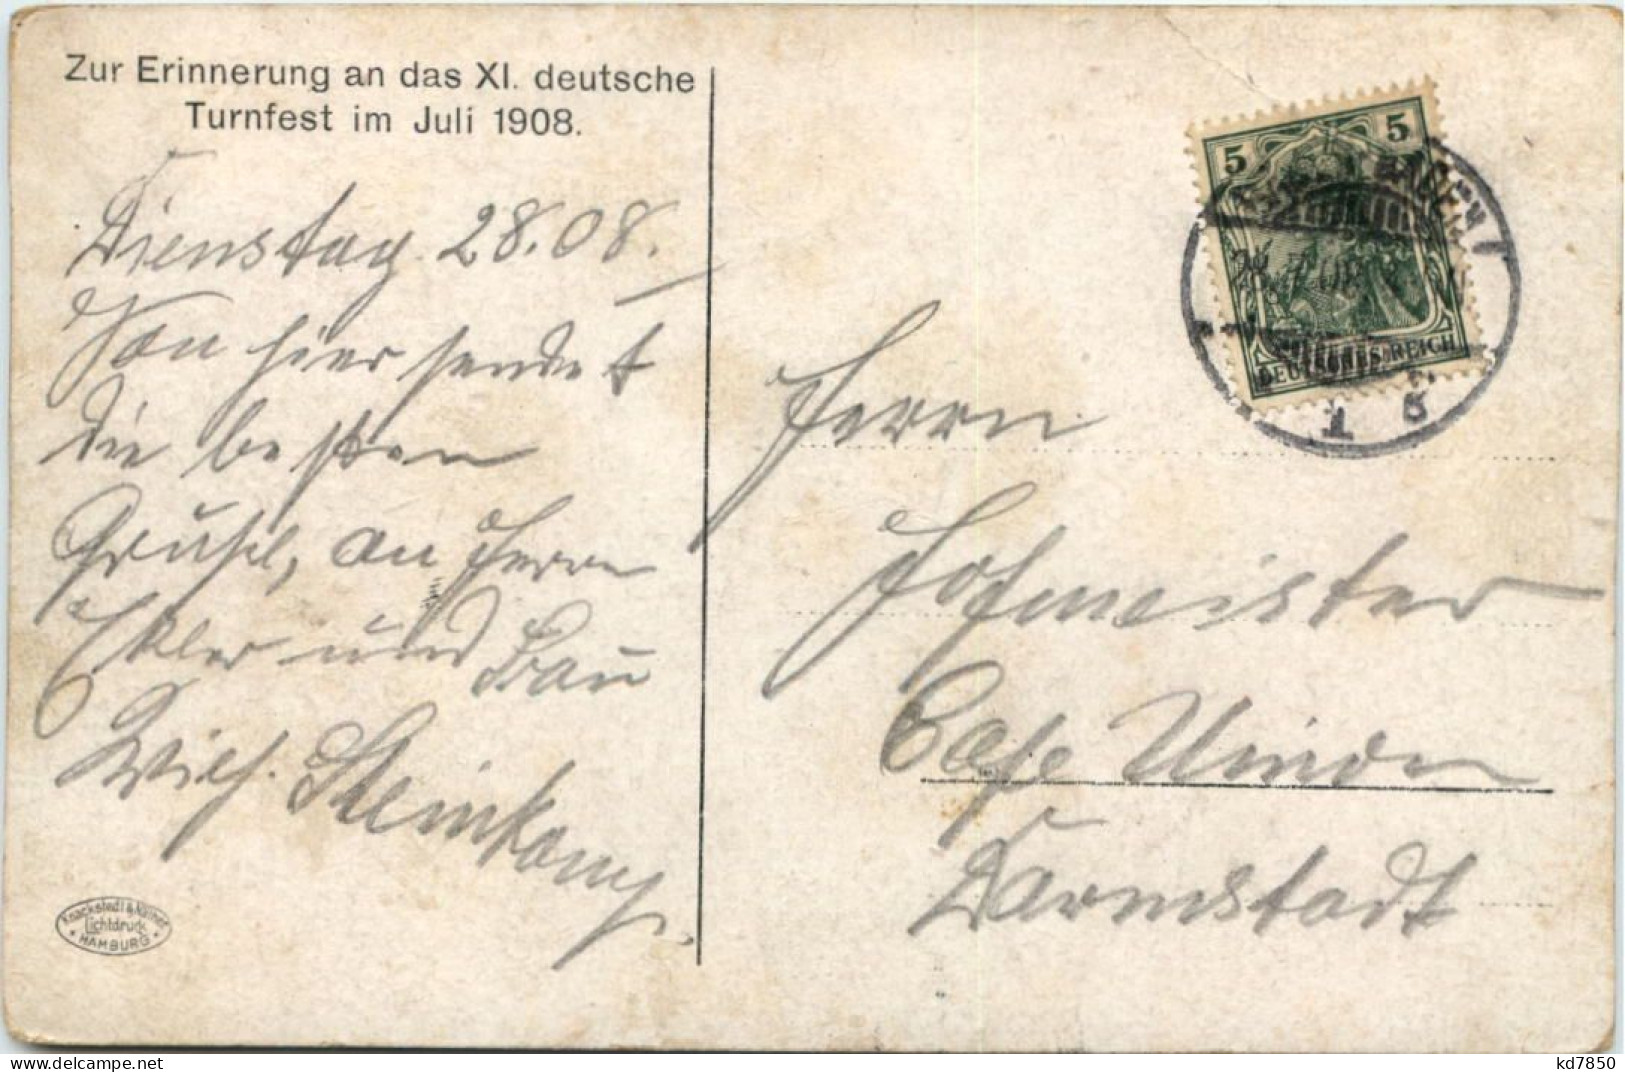 Zur Erinnerung an das XI. deutsche
Turnfest im Juli 1908.
Dienstag 28.08.
Von hier sendet
die besten
Grüße, an Herrn
Ekler und Frau
Wilh. Steinkamp.
Knackstedt & Näther
Lichtdruck
HAMBURG
5 5
DEUTSCHES REICH
1 5
Herrn
Hofmeister
Cafe Union
Darmstadt
kd7850